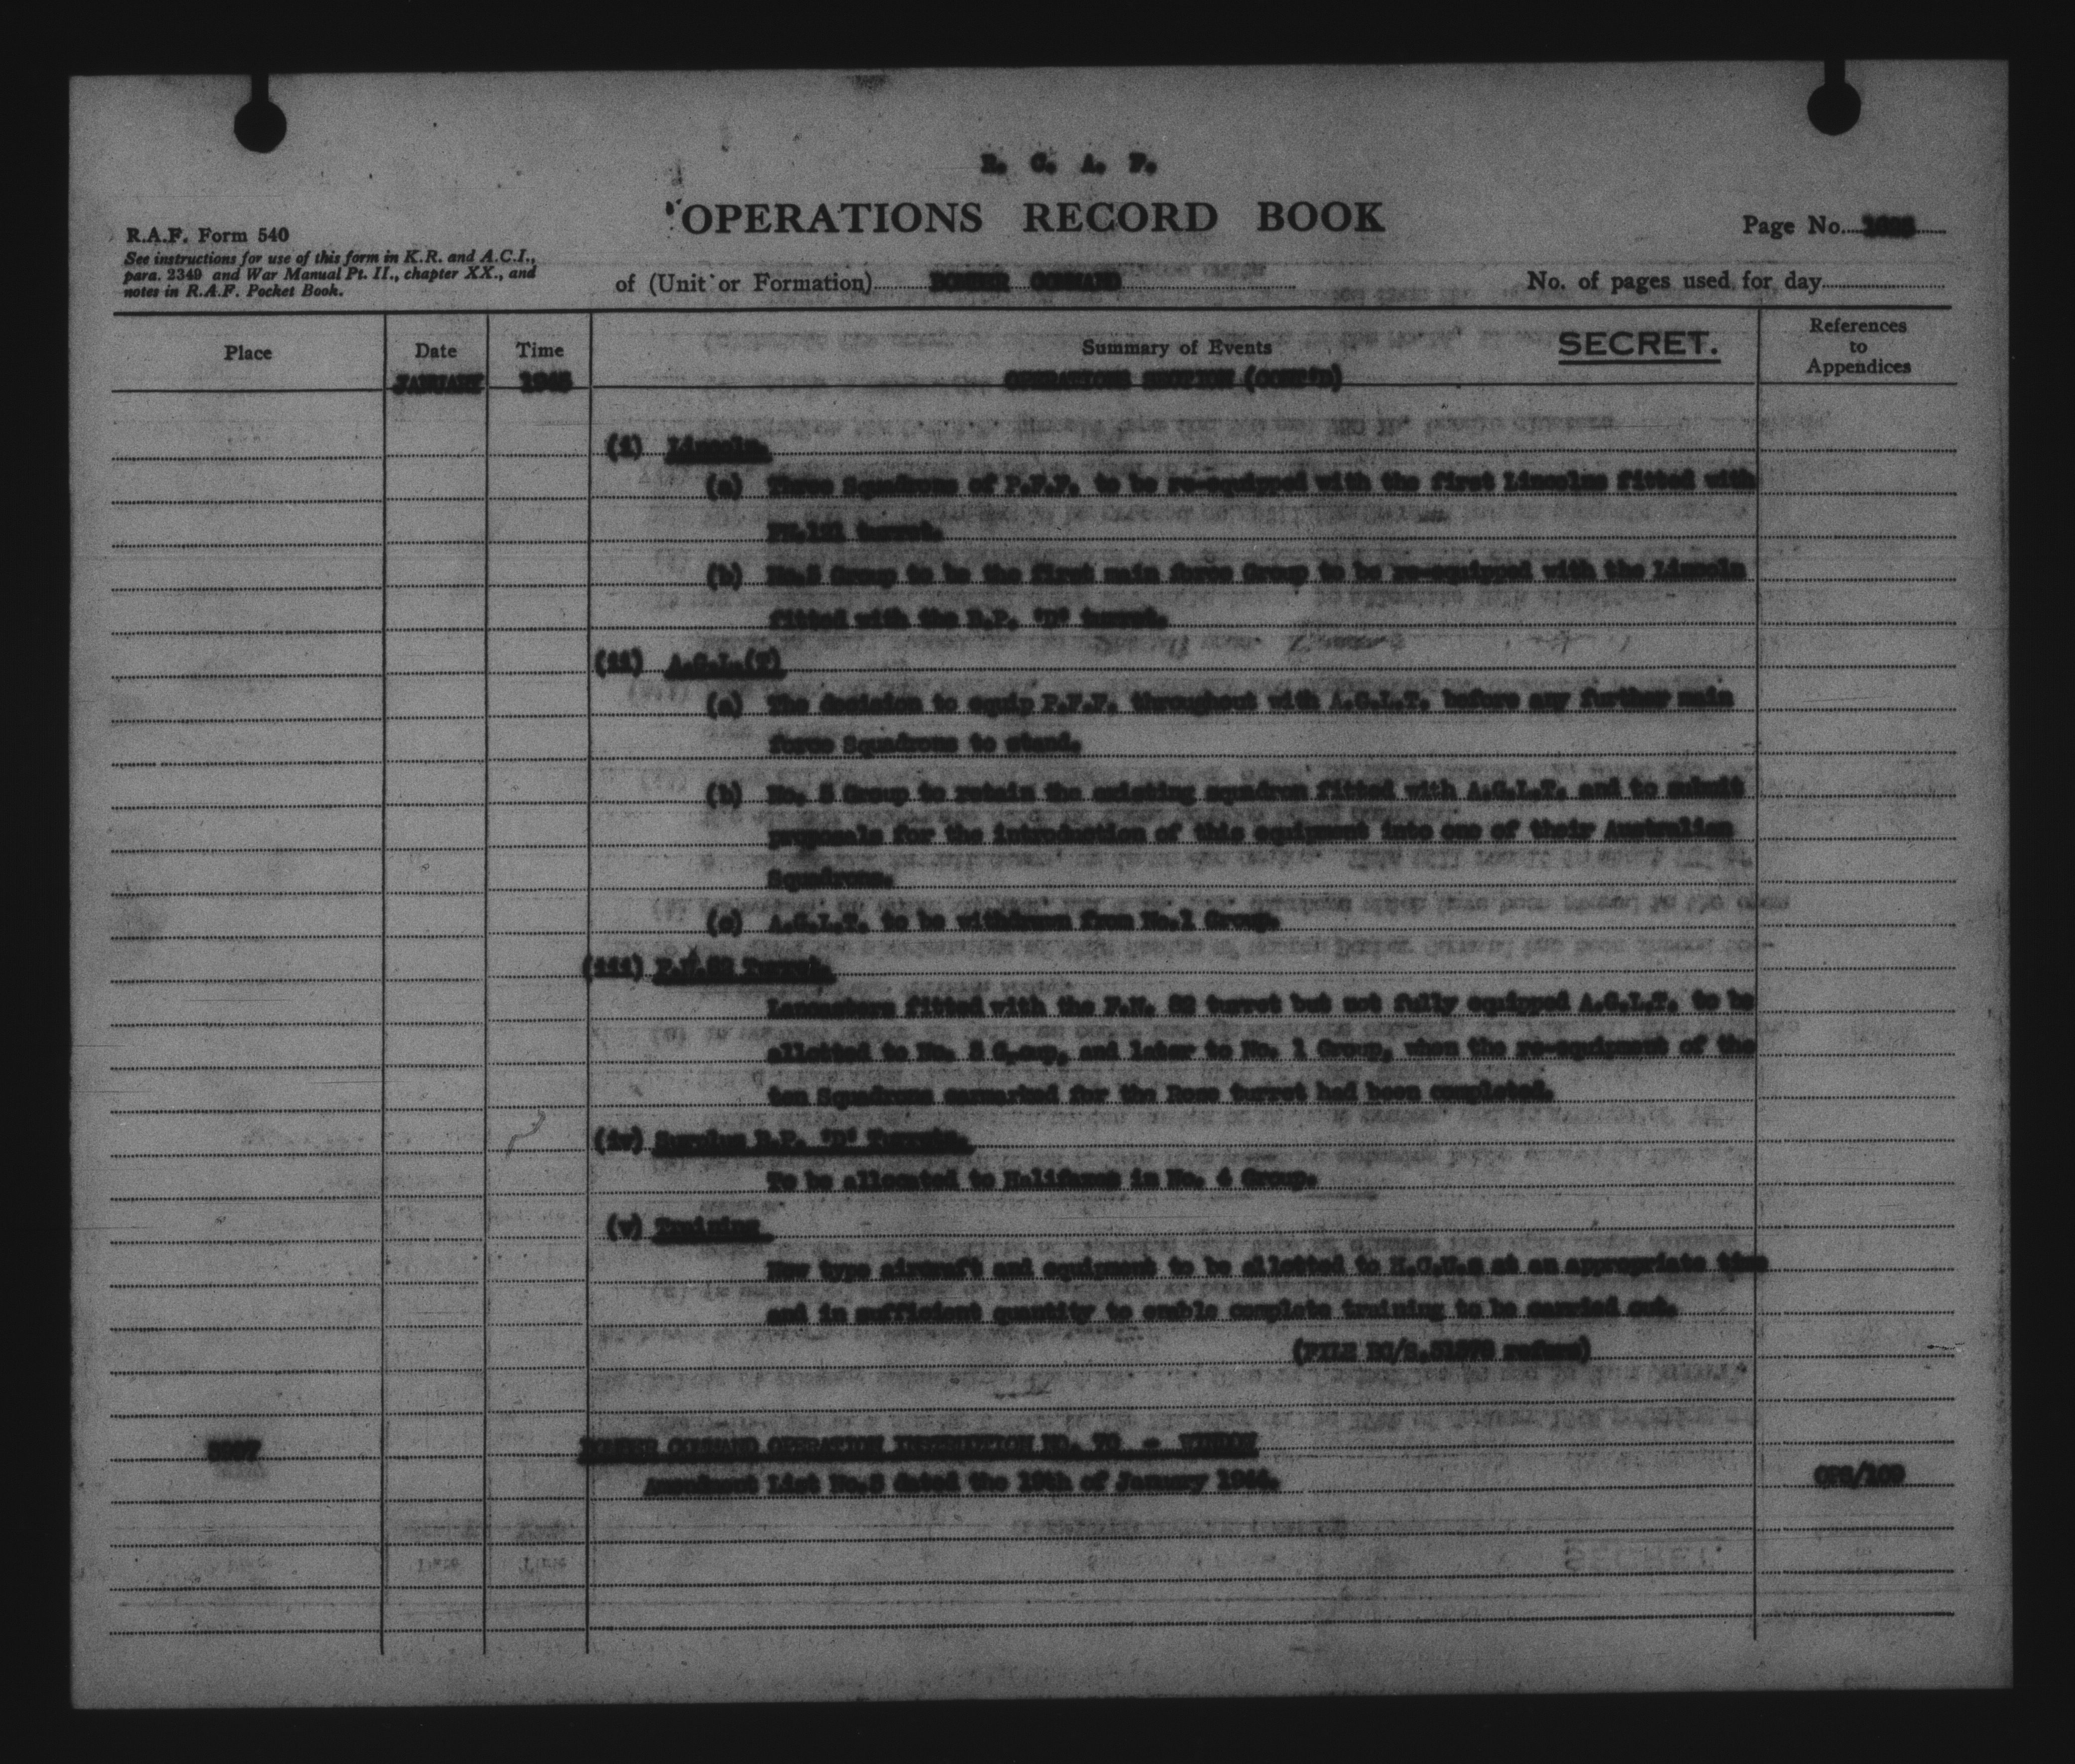 R. C. A. F.
OPERATIONS RECORD BOOK
Page No.
R.A.F. Form 540
See instructions for use of this form in K.R. and A.C.I.,
para. 2349 and War Manual Pt. II., chapter XX., and
notes in R.A.F. Pocket Book.
of (Unit or Formation) BOMBER COMMAND
No. of pages used for day
Place Date Time Summary of Events SECRET. References to Appendices
JANUARY 1945 OPERATIONS SECTION (CONT'D)
(i) Lincoln.
(a) Three Squadrons of P.F.F. to be re-equipped with the first Lincolns fitted with
FN.121 turret.
(b) No.5 Group to be the first main force Group to be re-equipped with the Lincoln
fitted with the B.P. 'D' turret.
(ii) A.G.L.(T)
(a) The decision to equip P.F.F. throughout with A.G.L.T. before any further main
force Squadrons to stand.
(b) No. 5 Group to retain the existing squadron fitted with A.G.L.T. and to submit
proposals for the introduction of this equipment into one of their Australian
Squadrons.
(c) A.G.L.T. to be withdrawn from No.1 Group.
(iii) F.N.82 Turret.
Lancasters fitted with the F.N. 82 turret but not fully equipped A.G.L.T. to be
allotted to No. 5 Group, and later to No. 1 Group, when the re-equipment of the
ten Squadrons earmarked for the Rose turret had been completed.
(iv) Surplus B.P. 'D' Turrets.
To be allocated to Halifaxes in No. 4 Group.
(v) Training
New type aircraft and equipment to be allotted to H.C.U.s at an appropriate time
and in sufficient quantity to enable complete training to be carried out.
(FILE BC/S.31573 refers)
BOMBER COMMAND OPERATION INSTRUCTION NO. 70 - WINDOW
Amendment List No.5 dated the 19th of January 1944.
OPS/109